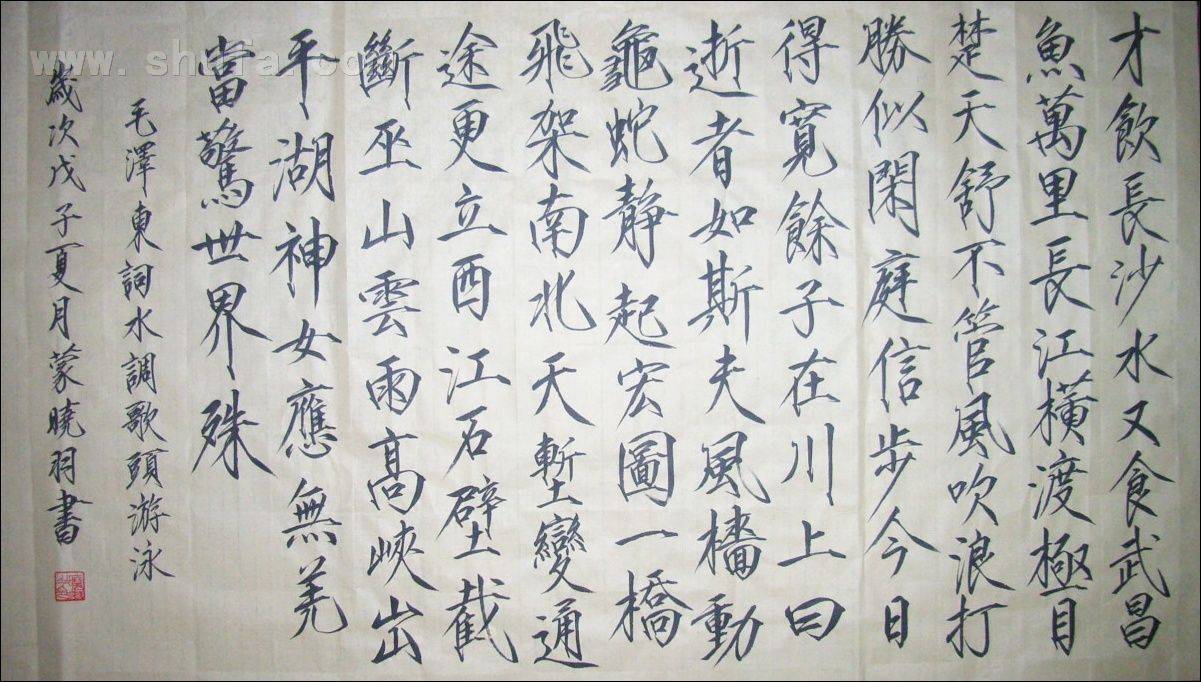 才飲長沙水又食武昌
魚萬里長江橫渡極目
楚天舒不管風吹浪打
勝似閑庭信步今日
得寬餘子在川上曰
逝者如斯夫風檣動
龜蛇静起宏圖一橋
飛架南北天塹變通
途更立酉江石壁截
斷巫山雲雨高峽出
平湖神女應無羌
當驚世界殊
毛澤東詞水調歌頭游泳
歲次戊子夏月蒙曉羽書
www.shufa.com